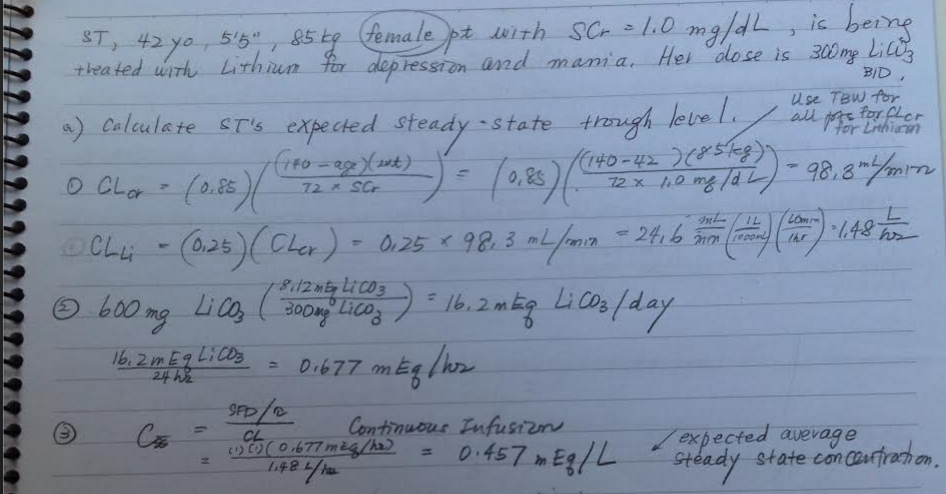 ST, 42 yo, 5'5", 85 kg female pt with SCr = 1.0 mg/dL, is being
treated with Lithium for depression and mania. Her dose is 300mg LiCO3
BID.
a) Calculate ST's expected steady-state trough level.
Use TBW for
all pts for CLcr
for Lithium
① CLcr = (0.85) ((140 - age)(wt) / 72 × SCr) = (0.85) ((140-42)(85kg) / 72 × 1.0 mg/dL) = 98.3 mL/min
CLLi = (0.25)(CLcr) = 0.25 × 98.3 mL/min = 24.6 mL/min (1L/1000mL) (60min/1hr) = 1.48 L/hr
② 600 mg LiCO3 (8.12mEq LiCO3 / 300mg LiCO3) = 16.2 mEq LiCO3/day
16.2 mEq LiCO3 / 24 hr = 0.677 mEq/hr
③ Css = SFD/τ / CL Continuous Infusion
= (1)(1)(0.677 mEq/hr) / 1.48 L/hr = 0.457 mEq/L
expected average
steady state concentration.